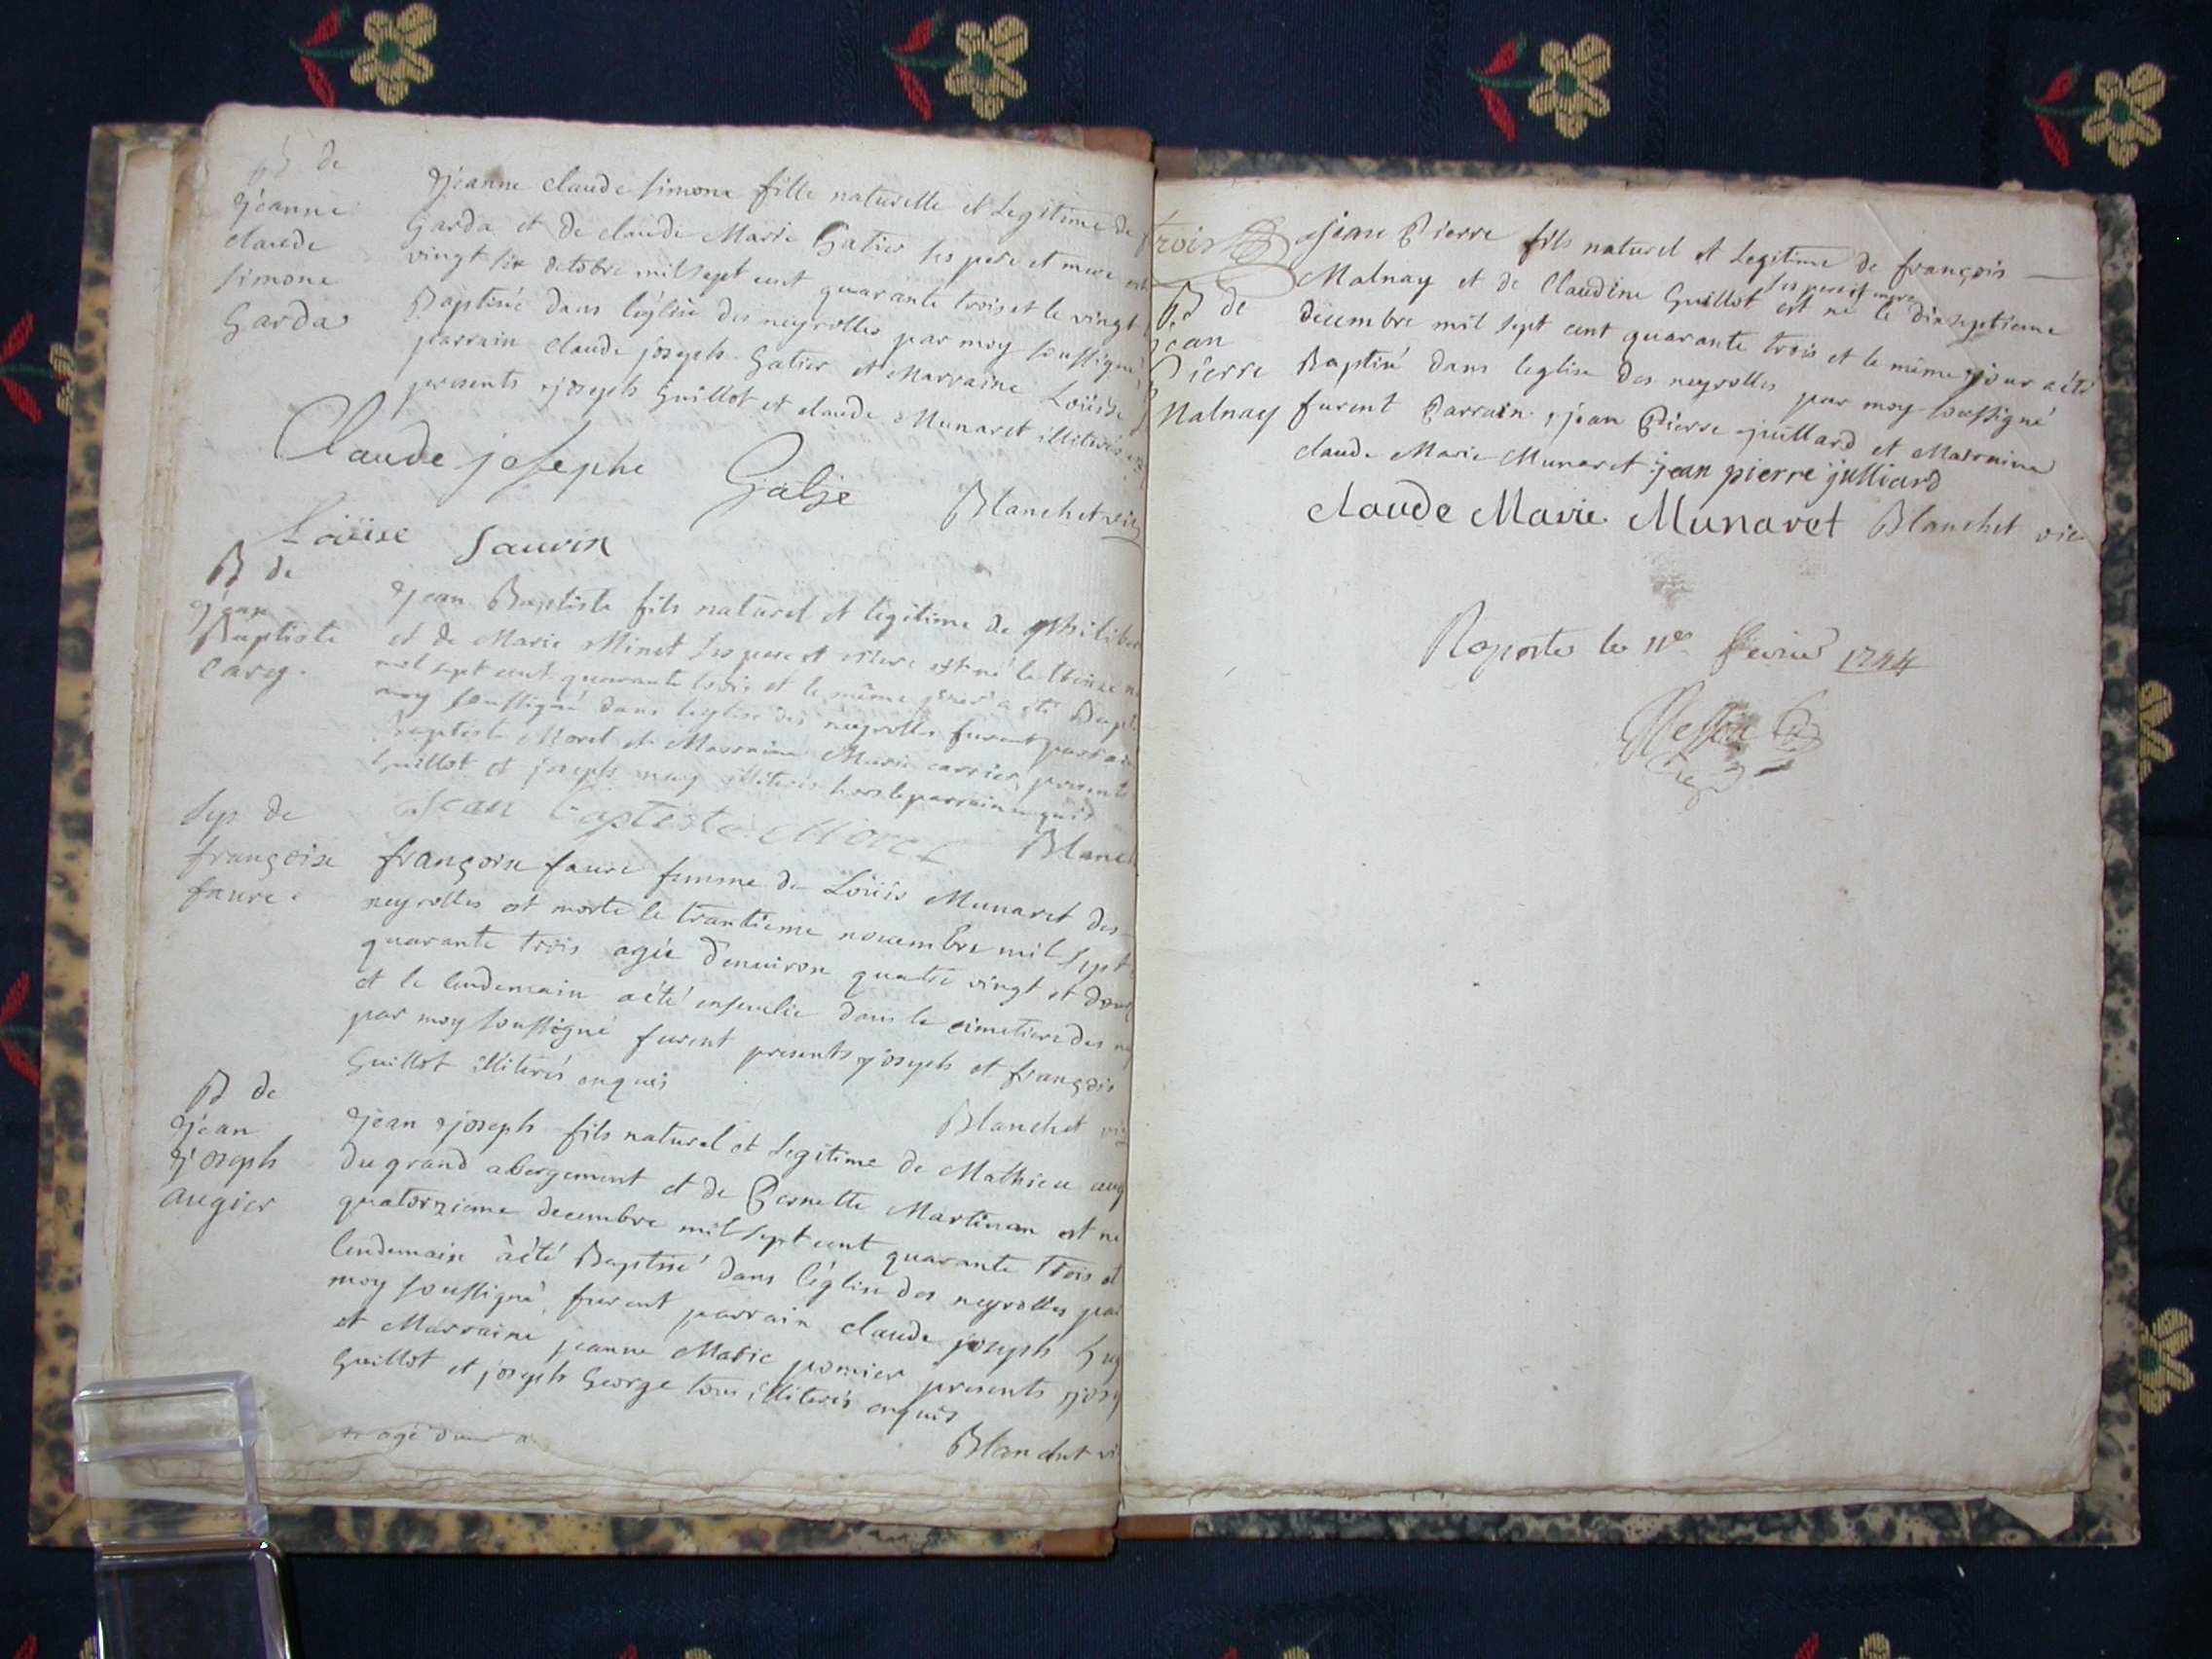 B de
jeanne
claude
simone
Garda
jeanne claude simone fille naturelle et Legitime de
Garda et de claude Marie Gatier ses pere et mere
vingt six octobre mil sept cent quarante trois et le vingt
Baptiseé dans l'églisé des neyrolles par moy soussigné
parrain claude joseph Gatier et Marraine Loüise
presents joseph Guillot et claude Munaret illiterés
Claude josephe Galje Blanchet vic
Loüise Sauvin
B de
jean
Baptiste
Carry.
jean Baptiste fils naturel et legitime de philiber
et de Marie Minet ses pere et mere est né le treize
mil sept cent quarante trois et le même jour a eté Bapt
moy soussigné dans leglise des neyrolles furent parrain
Baptiste Moret et Marraine Marie carrier, presents
Guillot et joseph illiterés hors le parrain enquis
Jean baptiste Moret Blanch
Sep de
françoise
faure.
françoise faure femme de Loüis Munaret des
neyrolles est morte le trantieme novembre mil sept
quarante trois agée d'enuiron quatre vingt et douz
et le lendemain aété enseuelie dans le cimetiere des
par moy soussigné furent presents joseph et françois
Guillot illiterés enquis
Blanchet vic
B de
jean
joseph
augier
jean joseph fils naturel et Legitime de Mathieu aug
du grand abergement et de Pernette Martinan est né
quatorzieme decembre mil sept cent quarante trois et
lendemain àété Baptisé dans l'église des neyrolles par
moy soussigné, furent parrain claude joseph hug
et Marraine jeanne Marie pomier presents jose
Guillot et joseph George tous illiterés enquis
Blanchet vi
trois
B de
jean
Pierre
Malnay
jean Pierre fils naturel et Legitime de françois
Malnay et de Claudine Guillot ses pere et mere est né le dixseptieme
decembre mil sept cent quarante trois et le même jour a été
Baptisé dans leglise des neyrolles par moy soussigné
furent Parrain jean Pierre juillard et Marraine
claude Marie Munaret jean pierre julliard
claude Marie Munaret Blanchet vic
Raporté le 11e fevrier 1744